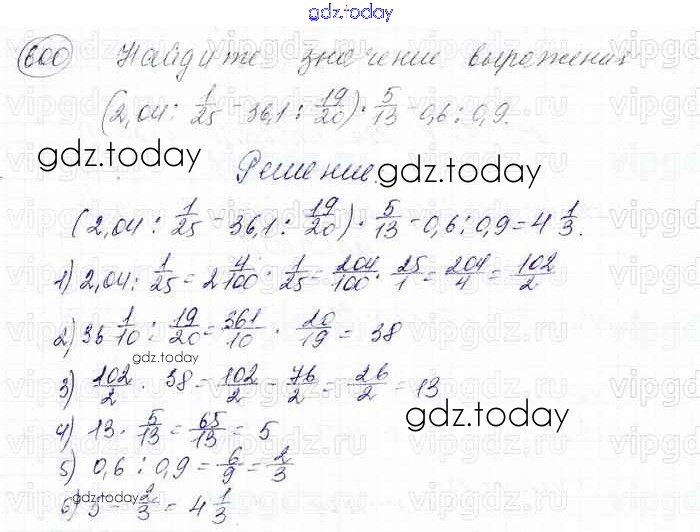 gdz.today
600 Найдите значение выражения
(2,04 : 1/25 - 36,1 : 19/20) · 5/13 - 0,6 : 0,9.
gdz.today gdz.today
Решение.
(2,04 : 1/25 - 36,1 : 19/20) · 5/13 - 0,6 : 0,9 = 4 1/3.
1) 2,04 : 1/25 = 2 4/100 · 1/25 = 204/100 · 25/1 = 204/4 = 102/2
2) 36 1/10 : 19/20 = 361/10 · 20/19 = 38
gdz.today
3) 102/2 · 38 = 102/2 - 76/2 = 26/2 = 13
gdz.today
4) 13 · 5/13 = 65/13 = 5
5) 0,6 : 0,9 = 6/9 = 2/3
6) 5 - 2/3 = 4 1/3.
gdz.today